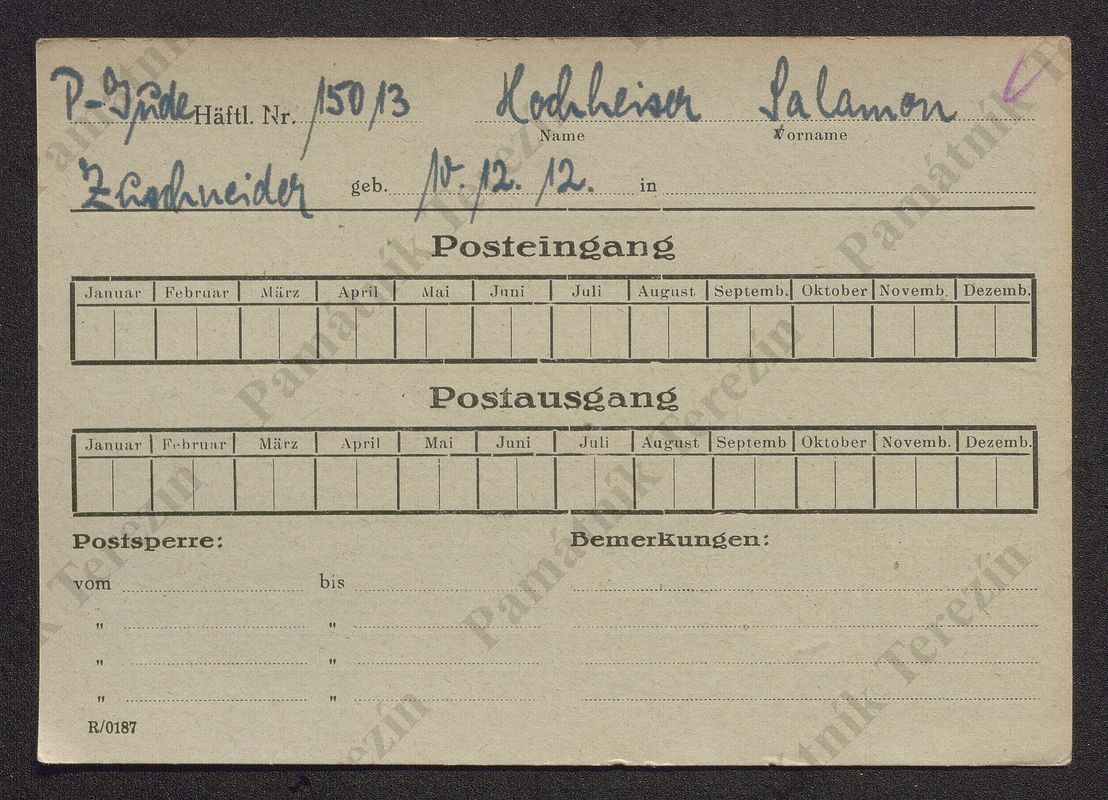 P-Jude Häftl. Nr. 15013 Hochheiser Salamon
Name Vorname
Zuschneider geb. 10. 12. 12. in
Posteingang
Januar Februar März April Mai Juni Juli August Septemb. Oktober Novemb. Dezemb.
Postausgang
Januar Februar März April Mai Juni Juli August Septemb Oktober Novemb. Dezemb.
Postsperre: Bemerkungen:
vom bis
" "
" "
" "
R/0187
Památník Terezín